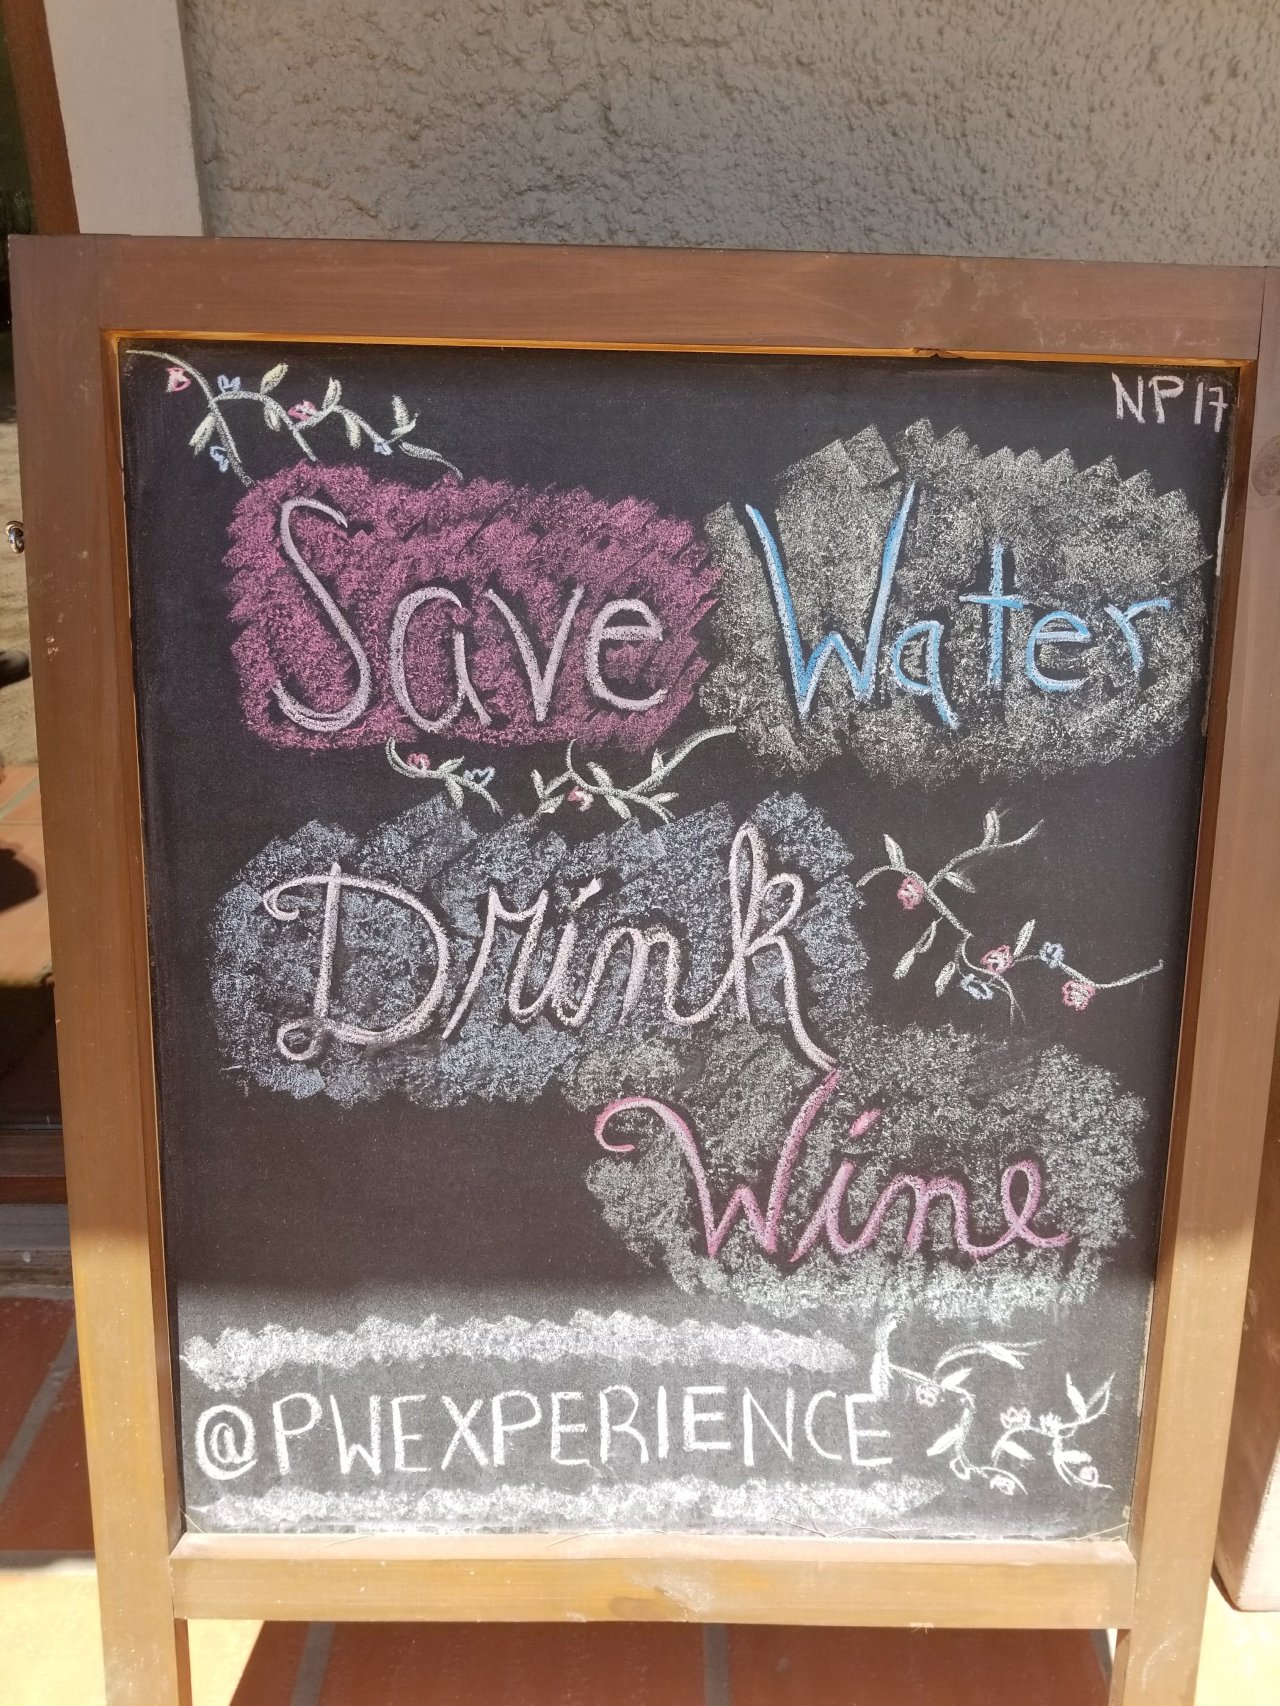 NP17
Save Water
Drink
Wine
@PWEXPERIENCE